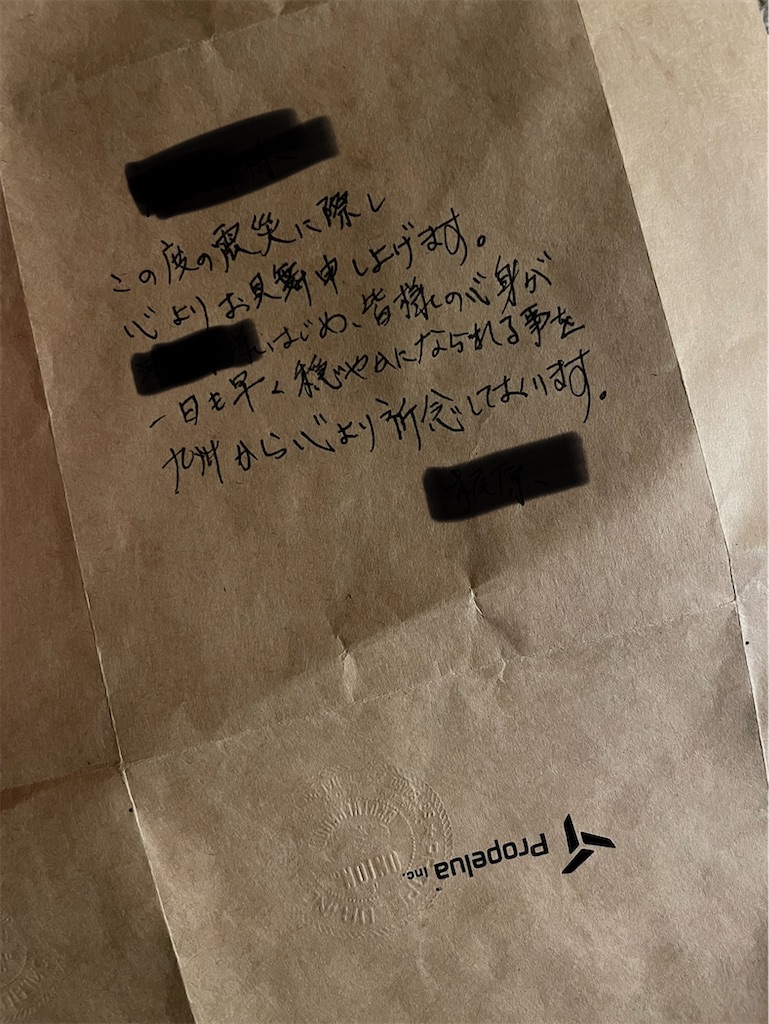 この度の震災に際し
心よりお見舞申し上げます。
はじめ、皆様の心身が
一日も早く穏やかになられる事を
九州から心より祈念しております。
Propelua Inc.
UNION